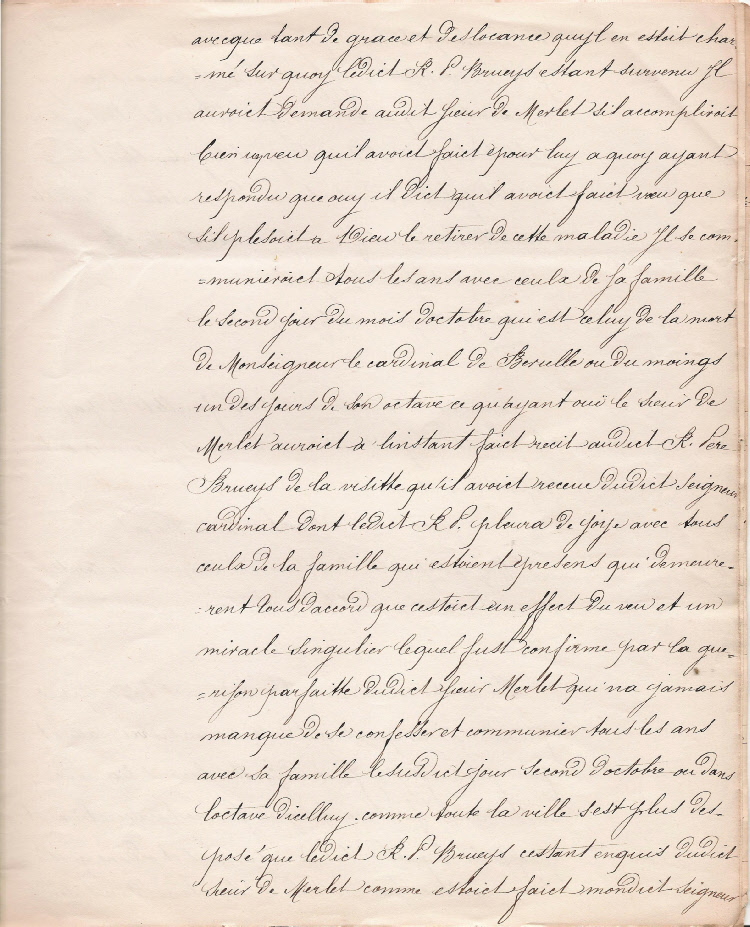 avecque tant de grace et deslocance quyl en estoit char-
=mé sur quoy ledict R. P. Brueys estant survenu Jl
auroict demande audit sieur de Merlet sil accompliroit
bien un veu quil avoict faict pour luy a quoy ayant
respondu que ouy il dict quil avoict faict veu que
sil plesoict a Dieu le retirer de cette maladie Jl se com-
=munieroict tous les ans avec ceulx de sa famille
le second jour du mois doctobre qui est celuy de la mort
de Monseigneur le cardinal de Berulle ou du moings
un des jours de son octave ce qu'ayant ouï le sieur de
Merlet auroict a linstant faict recit audict R. Pere
Brueys de la visitte qu'il avoict receue dudict seigneur
cardinal dont ledict R P. pleura de joye avec tous
ceulx de la famille qui estoient presens qui demeure-
=rent tous daccord que cestoict un effect du veu et un
miracle singulier lequel fust confirme par la gue=
=rison parfaitte dudict sieur Merlet qui na jamais
manque de se confesser et communier tous les ans
avec sa famille lesusdict jour second doctobre ou dans
loctave dicelluy. comme toute la ville sest plus des-
posé que ledict R. P. Brueys cestant enquis dudict
sieur de Merlet comme estoict faict mondict seigneur